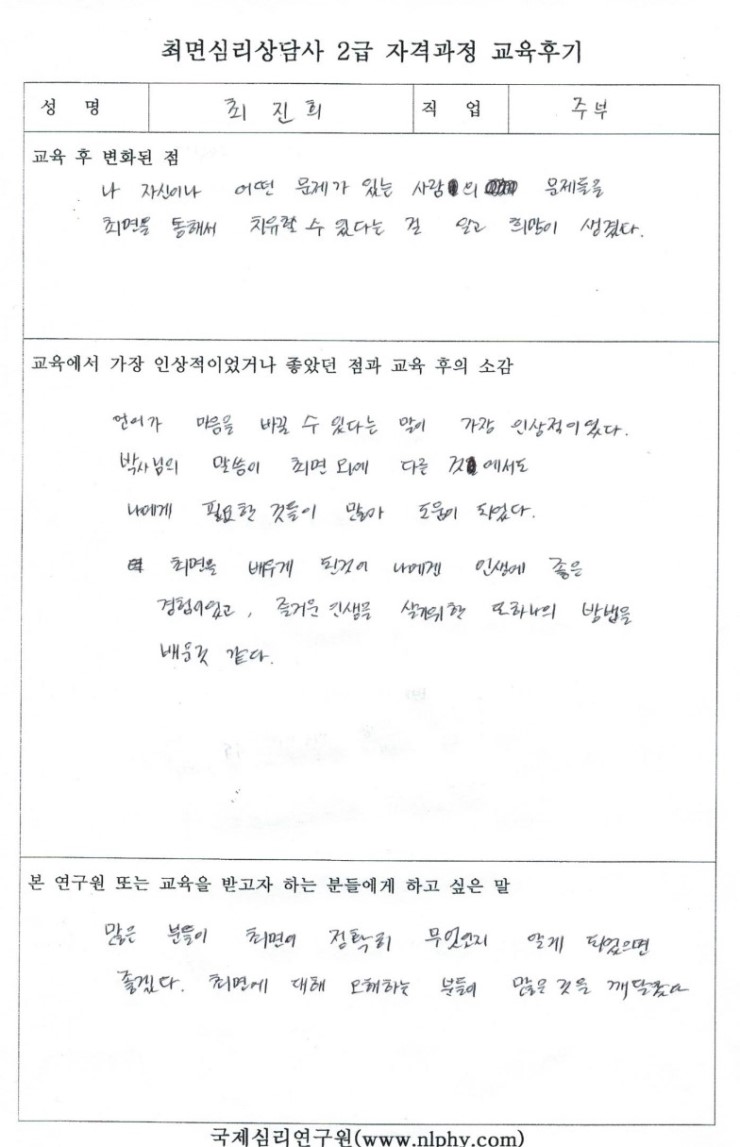 최면심리상담사 2급 자격과정 교육후기
성 명 최 진 희 직 업 주부
교육 후 변화된 점
나 자신이나 어떤 문제가 있는 사람의 문제들을
최면을 통해서 치유할 수 있다는 걸 알고 희망이 생겼다.
교육에서 가장 인상적이었거나 좋았던 점과 교육 후의 소감
언어가 마음을 바꿀 수 있다는 말이 가장 인상적이였다.
박사님의 말씀이 최면 외에 다른 것에서도
나에게 필요한 것들이 많아 도움이 되었다.
최면을 배우게 된것이 나에겐 인생에 좋은
경험이었고, 즐거운 인생을 살기위한 또하나의 방법을
배운것 같다.
본 연구원 또는 교육을 받고자 하는 분들에게 하고 싶은 말
많은 분들이 최면이 정확히 무엇인지 알게 되었으면
좋겠다. 최면에 대해 오해하는 분들이 많은 것을 깨달았다
국제심리연구원(www.nlphy.com)